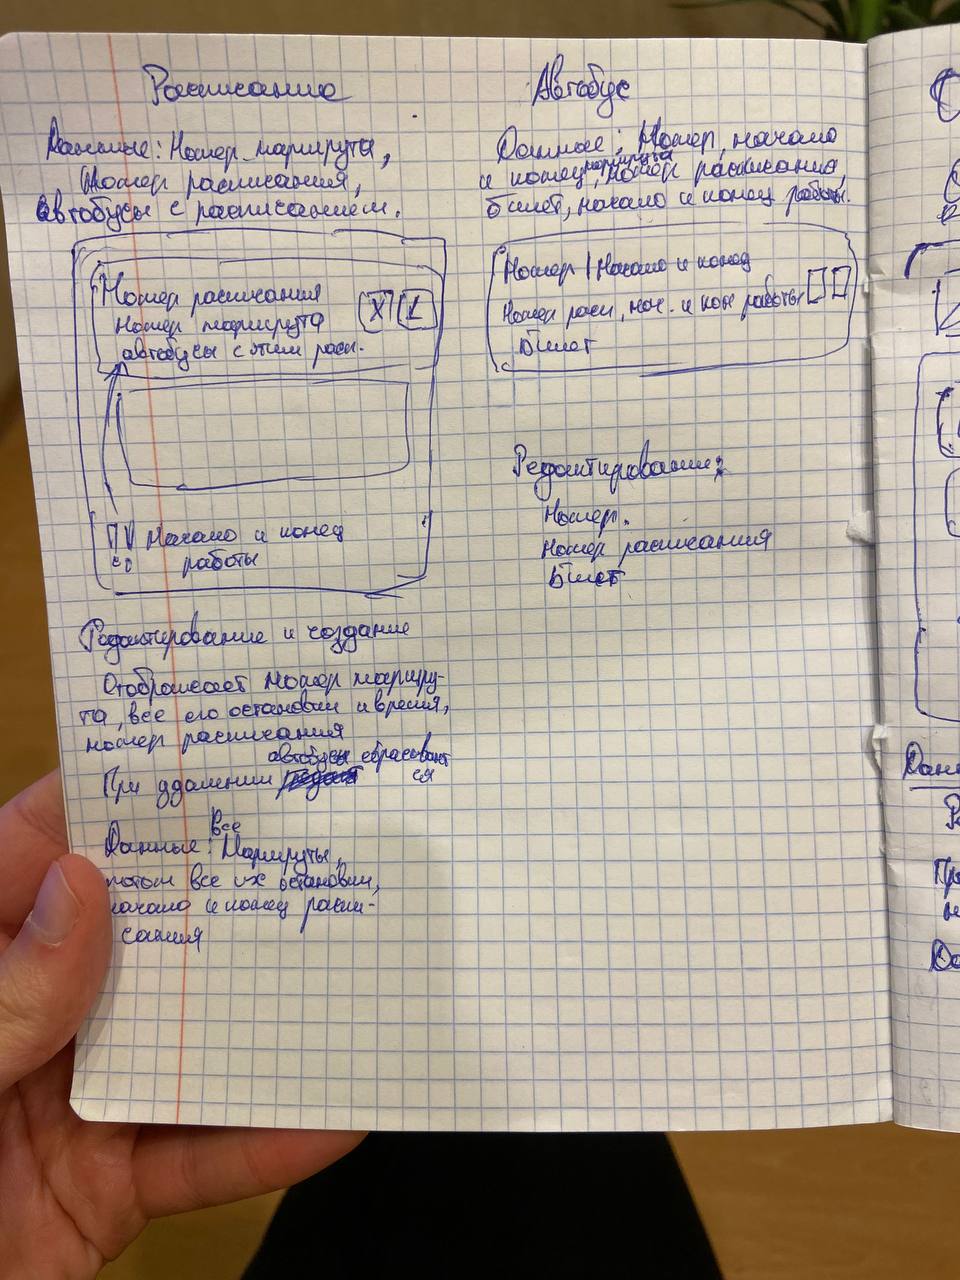 Расписание
Данные: Номер маршрута,
Номер расписания,
автобусы с расписанием.
Номер расписания
Номер маршрута
автобусы с этим распи.
X
Начало и конец
работы
Редактирование и создание
Отображает номер маршру-
та, все его остановки и время,
номер расписания
автобусы сбрасывают
При удалении ся
Все
Данные: Маршруты,
потом все их остановки,
начало и конец распи-
сания
Автобус
Данные: Номер, начало
маршрута
и конец, номер расписания,
билет, начало и конец работы.
Номер | Начало и конец
Номер распи, нач. и кон работы
Билет
Редактирование:
Номер.
Номер расписания
Билет